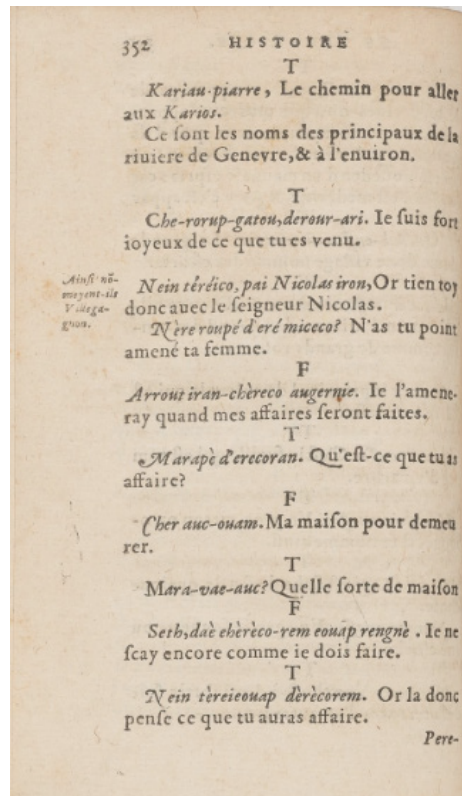 352 HISTOIRE
T
Kariau-piarre, Le chemin pour aller
aux Karios.
Ce ſont les noms des principaux de la
riuiere de Genevre,& à l'enuiron.
T
Che-rorup-gatou,derour-ari. Ie ſuis fort
ioyeux de ce que tu es venu.
Ainſi nõ-
moyent-ils
Villega-
gnon.
Nein téréico, pai Nicolas iron, Or tien toy
donc auec le ſeigneur Nicolas.
Nère roupé d'eré miceco? N'as tu point
amené ta femme.
F
Arrout iran-chèreco augernie. Ie l'amene-
ray quand mes affaires ſeront faites.
T
Marapè d'erecoran. Qu'eſt-ce que tu as
affaire?
F
Cher auc-ouam. Ma maiſon pour demeu
rer.
T
Mara-vae-auc? Quelle ſorte de maiſon
F
Seth,daè ehèrèco-rem eouap rengnè . Ie ne
ſcay encore comme ie dois faire.
T
Nein tèreieouap dèrècorem. Or la donc
penſe ce que tu auras affaire.
Pere-